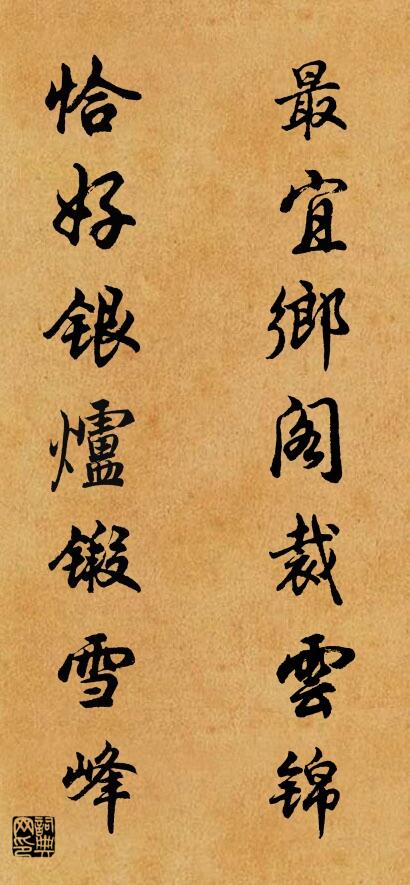 最宜鄉阁裁雲锦
恰好银爐锻雪峰
詞典网印